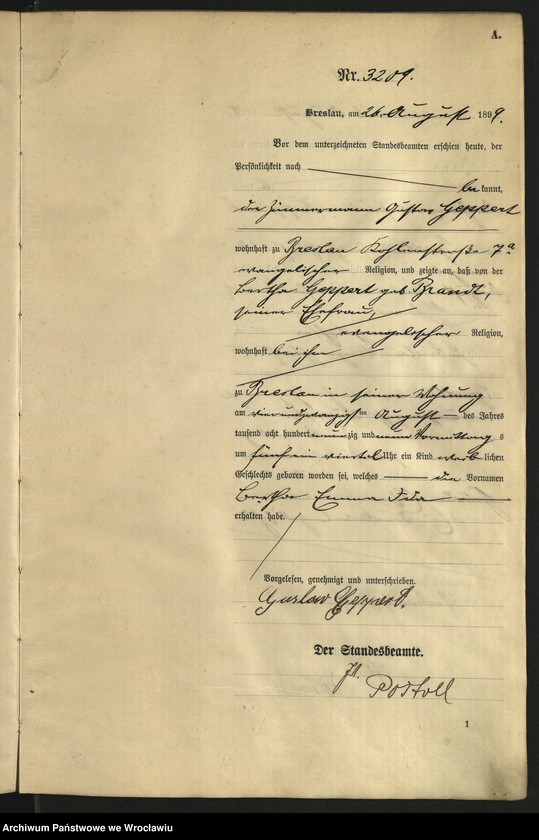 A.
Nr. 3209.
Breslau, am 26. August 1899.
Vor dem unterzeichneten Standesbeamten erschien heute, der
Persönlichkeit nach
be kannt,
der Zimmermann Gustav Geppert
wohnhaft zu Breslau Kohlenstraße 7a
evangelischer Religion, und zeigte an, daß von der
Bertha Geppert geb. Brandt,
seiner Ehefrau,
evangelischer Religion,
wohnhaft bei ihm
zu Breslau in seiner Wohnung
am vierundzwanzigsten August des Jahres
tausend acht hundert neunzig und neun Vormittags
um fünf ein viertel Uhr ein Kind weiblichen
Geschlechts geboren worden sei, welches die Vornamen
Bertha Emma Ida
erhalten habe.
Vorgelesen, genehmigt und unterschrieben.
Gustav Geppert.
Der Standesbeamte.
1
Archiwum Państwowe we Wrocławiu